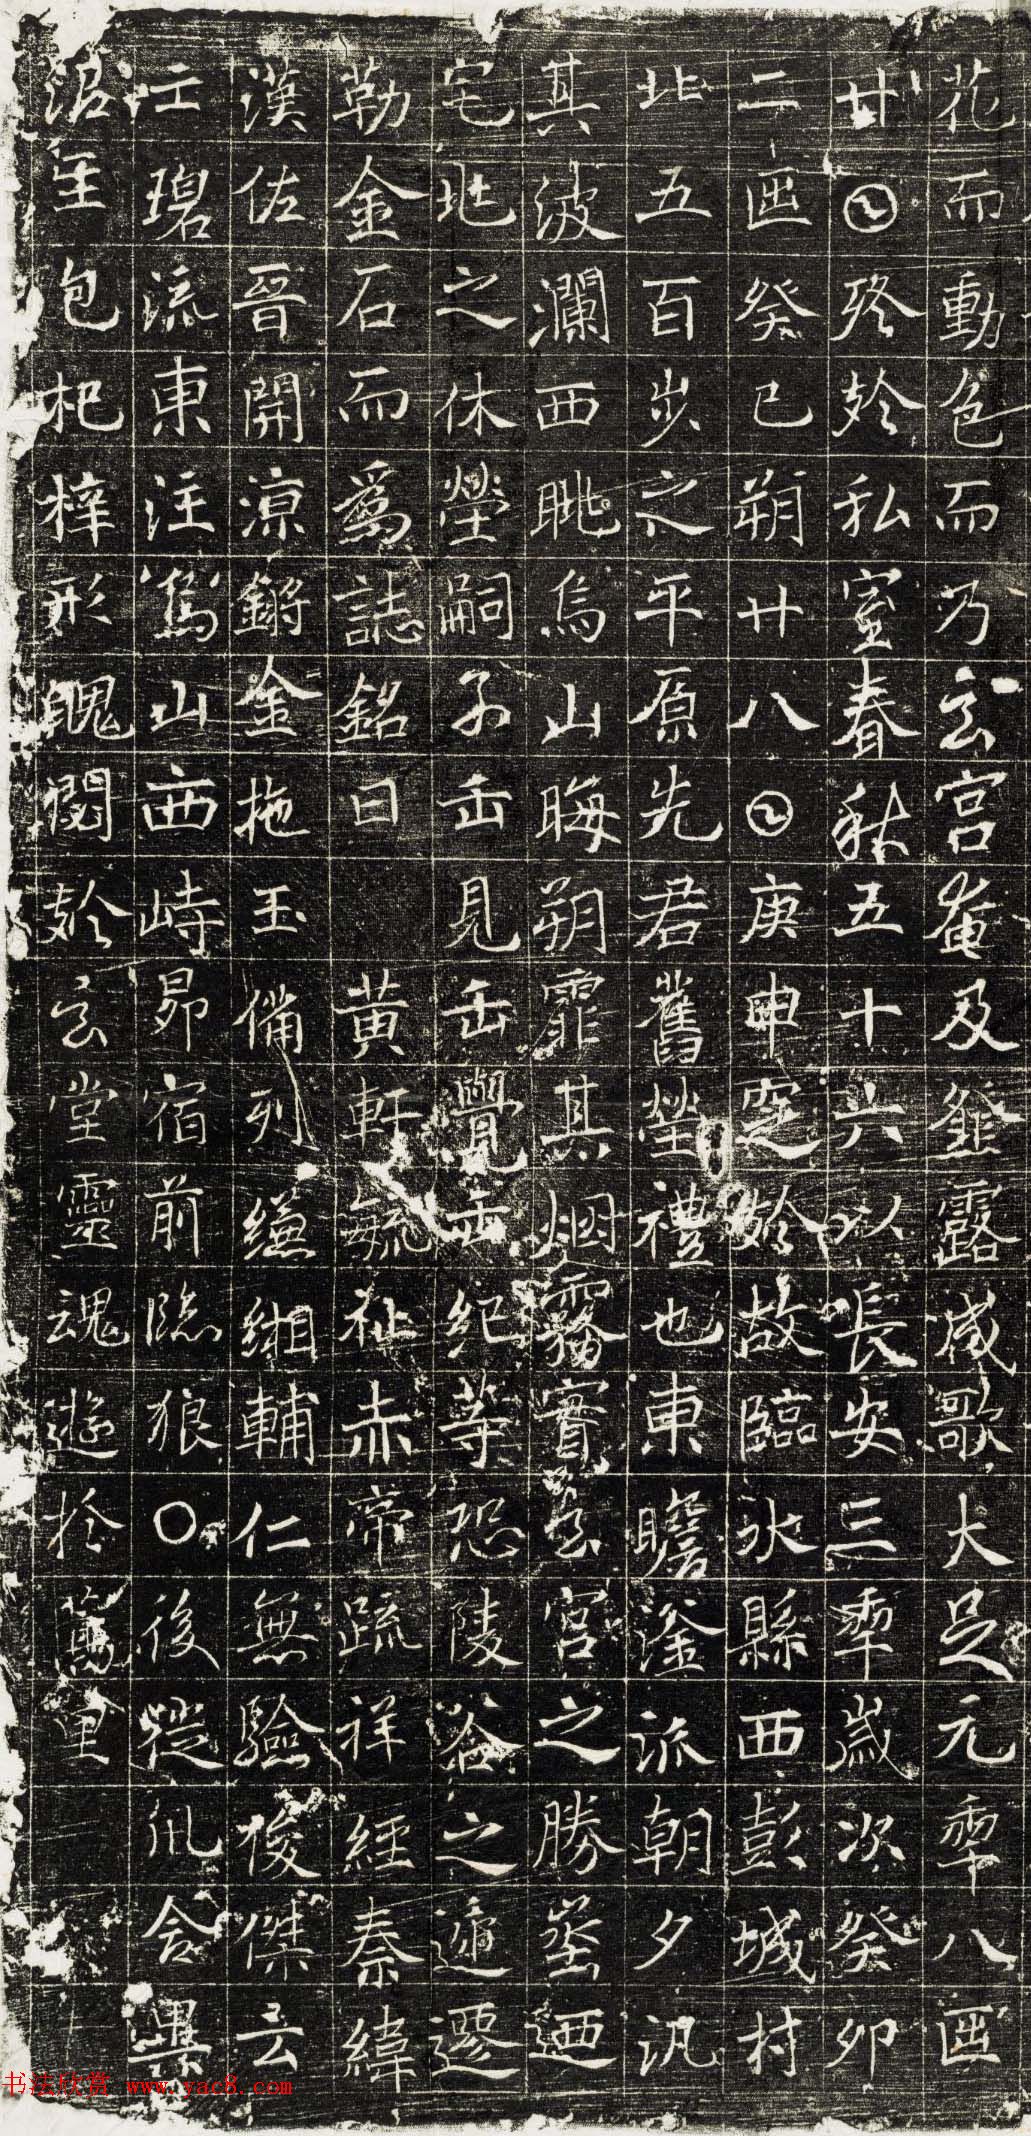 花而動色而乃玄宮奄及薤露咸歌大足元𠡦八𠥱
廿𡆠終於私室春秋五十六以長安三𠡦歲次癸卯
二𠥱癸巳朔廿八𡆠庚申窆於故臨水縣西彭城村
北五百步之平原先君舊塋禮也東瞻滏派朝夕汎
其波瀾西眺鳥山晦朔霏其烟霧實玄宮之勝
宅地之休塋嗣子岳見岳覺岳紀等恐陵谷之遞遷
勒金石而爲誌銘曰 黃軒毓祉赤帝疏祥經秦緯
漢佐晉開涼鏘金拖玉備列縑緗輔仁無驗俊傑云
亡碧流東注鳥山西峙昴宿前臨狼〇後從爪合
包杞梓形閟於玄堂靈魂遊於里
书法欣赏 www.yac8.com